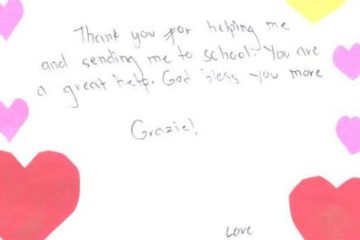 Thank you for helping me
and sending me to school. You are
a great help. God bless you more
Grazie!
Love